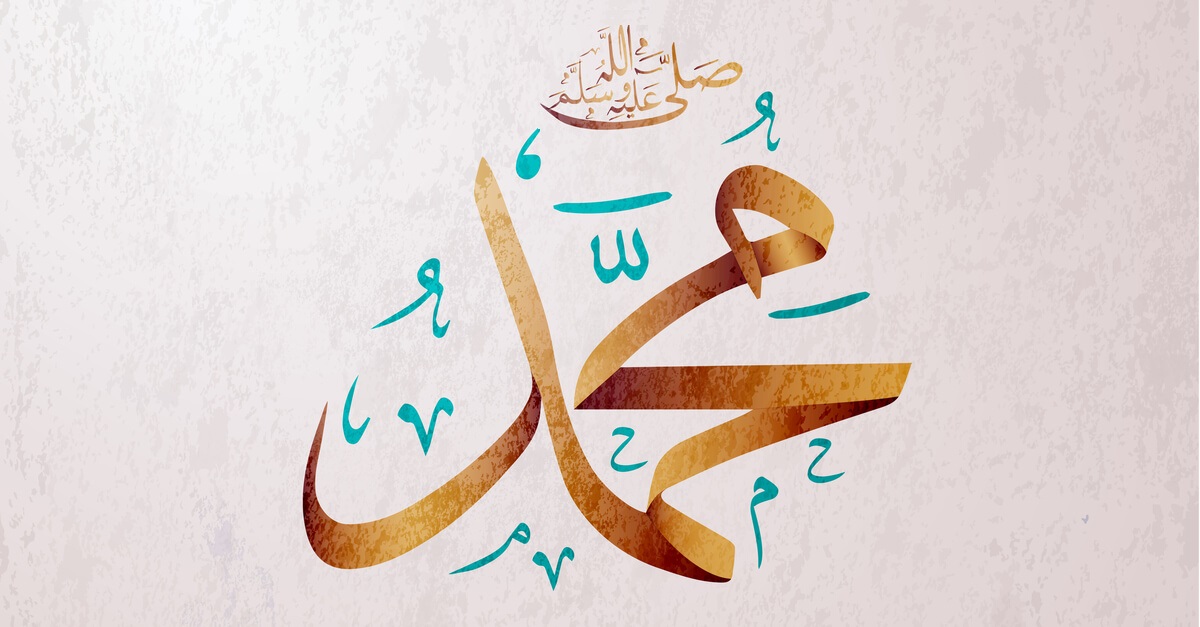 صَلَّى اللَّهُ عَلَيْهِ وَسَلَّمَ
مُحَمَّدٌ